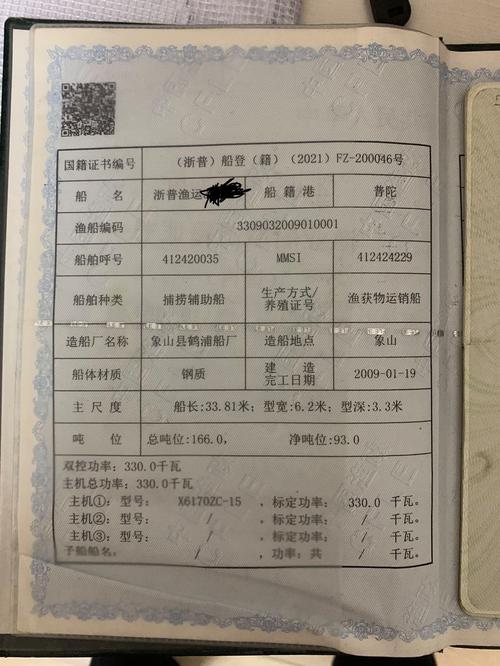 国籍证书编号 （浙普）船登（籍）（2021）FZ-200046号
船 名 浙普渔运 船 籍 港 普陀
渔船编码 3309032009010001
船舶呼号 412420035 MMSI 412424229
船舶种类 捕捞辅助船 生产方式/养殖证号 渔获物运销船
造船厂名称 象山县鹤浦船厂 造船地点 象山
船体材质 钢质 建 造完工日期 2009-01-19
主 尺 度 船长:33.81米; 型宽:6.2米; 型深:3.3米
吨 位 总吨位:166.0, 净吨位:93.0
双控功率: 330.0千瓦
主机总功率: 330.0千瓦
主机①: 型号: X6170ZC-15 , 标定功率: 330.0 千瓦。
主机②: 型号: / , 标定功率: / 千瓦。
主机③: 型号: / , 标定功率: / 千瓦。
子船船名: / , 功率: 共 / 千瓦。